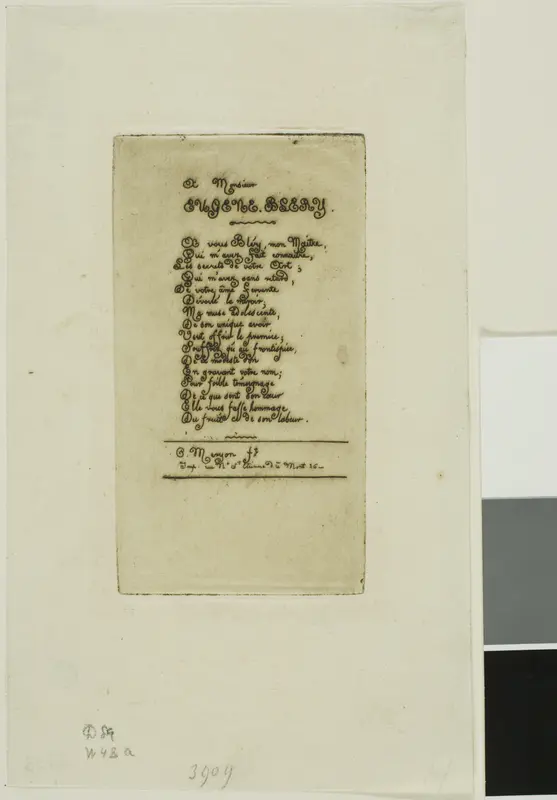 A Monsieur
EUGENE. BLERY.
A vous Bléry, mon Maître,
Qui m'avez fait connaitre,
Les secrets de votre Art;
Qui m'avez sans retard,
De votre âme fervente
Dévoilé le miroir;
Ma muse adolescente,
De son unique avoir
Vert offrir le premice;
Souffrez, où au frontispice,
De ce modeste don
En gravant votre nom;
Pour foible témoignage
De ce que sent son cœur
Elle vous fasse hommage
Du fruit de son labeur.
C. Meryon ft
Imp. rue Nve St Etienne du Mont 26
D 89
W 43 a
3909